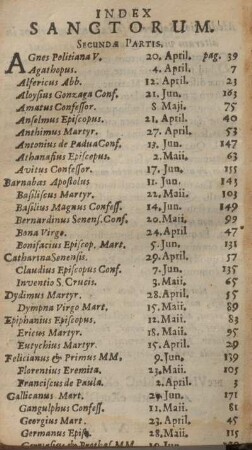 INDEX
SANCTORUM.
SECUNDÆ PARTIS.
AGnes Politiana V. 20. April. pag. 39
Agathopus. 4. April. 7
Alfericus Abb. 12. April. 23
Aloysius Gonzaga Conf. 21. Jun. 163
Amatus Confessor. 8. Maji. 75
Anselmus Episcopus. 21. April. 40
Anthimus Martyr. 27. April. 53
Antonius de Padua Conf. 13. Jun. 147
Athanasius Episcopus. 2. Maii. 63
Avitus Confessor. 17. Jun. 155
Barnabas Apostolus 11. Jun. 143
Basiliscus Martyr. 22. Maii. 103
Basilius Magnus Confess. 14. Jun. 149
Bernardinus Senens. Conf. 20. Mari. 99
Bona Virgo. 24. April 47
Bonifacius Episcop. Mart. 5. Jun. 131
Catharina Senensis. 29. April. 57
Claudius Episcopus Conf. 7. Jun. 135
Inventio S. Crucis. 3. Maii. 65
Dydimus Martyr. 28. April. 55
Dympna Virgo Mart. 15. Maii. 89
Epiphanius Episcopus. 12. Maii. 83
Ericus Martyr. 18. Maii. 95
Eutychius Martyr. 15. April. 29
Felicianus & Primus MM. 9. Jun. 139
Florentius Eremita. 23. Maii. 105
Franciscus de Paula. 2. April. 3
Gallicanus Mart. 25. Jun. 171
Gangulphus Confess. 11. Maii. 81
Georgius Mart. 23. April. 45
Germanus Episc. 28. Maii. 115